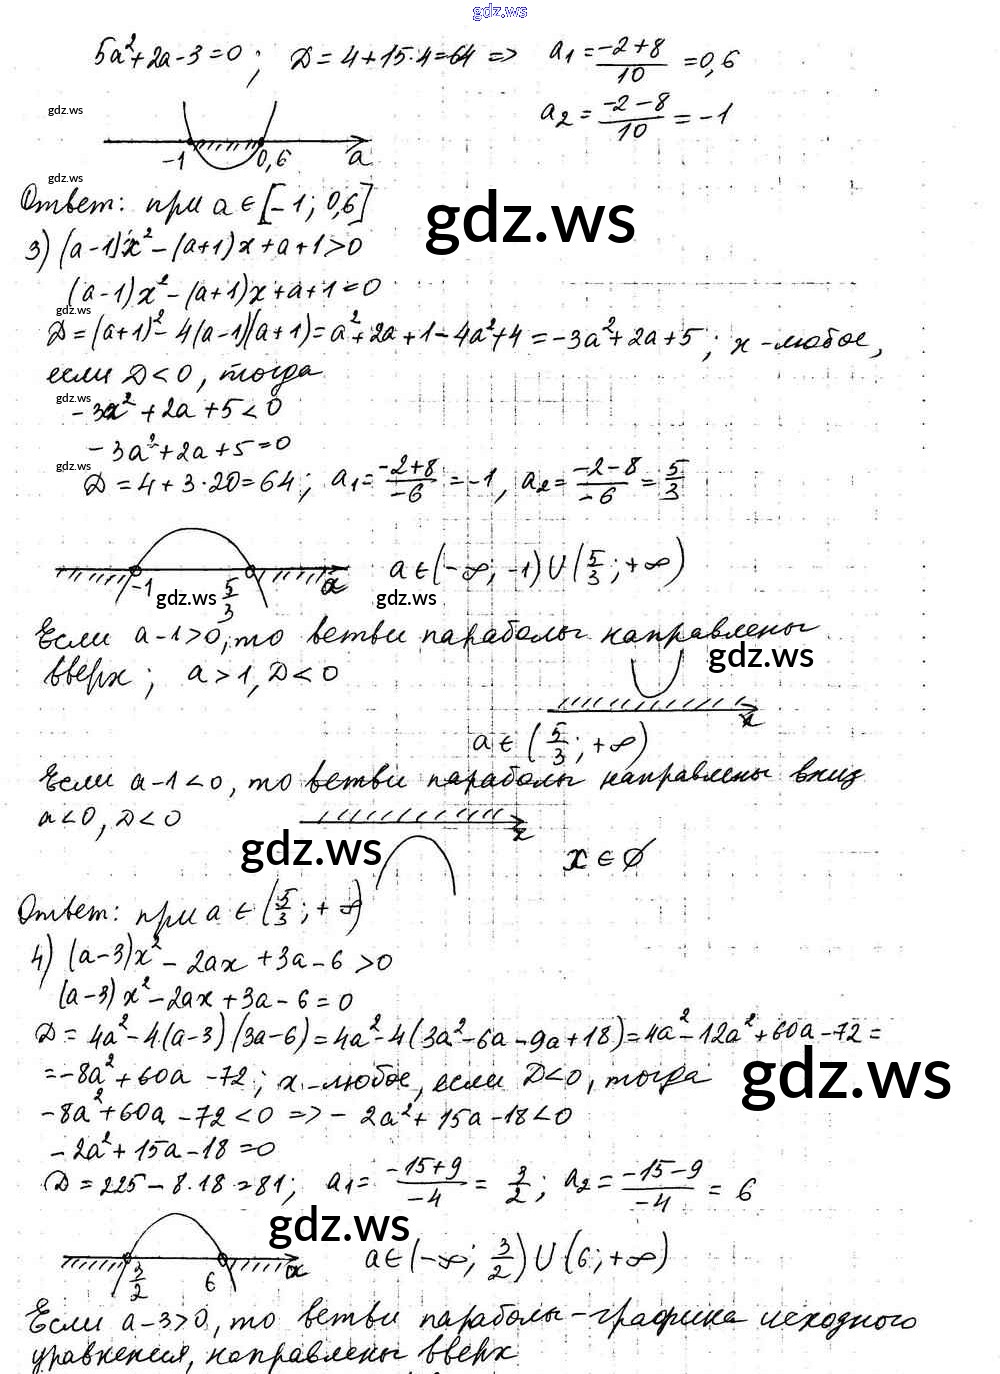 gdz.ws
5a²+2a-3=0; D=4+15·4=64 => a₁=(-2+8)/10=0,6
gdz.ws
a₂=(-2-8)/10=-1
-1 0,6 a
gdz.ws
Ответ: при a∈[-1; 0,6]
gdz.ws
3) (a-1)x²-(a+1)x+a+1>0
(a-1)x²-(a+1)x+a+1=0
gdz.ws
D=(a+1)²-4(a-1)(a+1)=a²+2a+1-4a²+4=-3a²+2a+5; x-любое,
если D<0, тогда
gdz.ws
-3a²+2a+5<0
-3a²+2a+5=0
gdz.ws
D=4+3·20=64; a₁=(-2+8)/-6=-1, a₂=(-2-8)/-6=5/3
-1 5/3 a
a∈(-∞; -1)∪(5/3; +∞)
gdz.ws gdz.ws
Если a-1>0, то ветви параболы направлены
вверх; a>1, D<0
gdz.ws
x
a∈(5/3; +∞)
Если a-1<0, то ветви параболы направлены вниз
a<0, D<0
x
gdz.ws
x∈∅
Ответ: при a∈(5/3; +∞)
4) (a-3)x²-2ax+3a-6>0
(a-3)x²-2ax+3a-6=0
D=4a²-4(a-3)(3a-6)=4a²-4(3a²-6a-9a+18)=4a²-12a²+60a-72=
=-8a²+60a-72; x-любое, если D<0, тогда
gdz.ws
-8a²+60a-72<0 => -2a²+15a-18<0
-2a²+15a-18=0
D=225-8·18=81; a₁=(-15+9)/-4=3/2; a₂=(-15-9)/-4=6
gdz.ws
3/2 6 a
a∈(-∞; 3/2)∪(6; +∞)
Если a-3>0, то ветви параболы-графика исходного
уравнения, направлены вверх